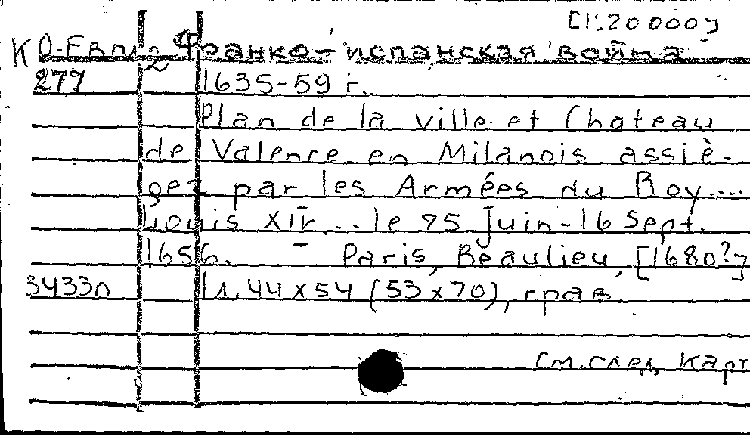 [1:20 000]
К О-Евр.2 Франко-испанская война
277 1635-59 г.
Plan de la ville et Chateau
de Valence en Milanois assiè-
gez par les Armées du Roy...
Louis XIV... le 25 Juin-16 Sept.
1656. Paris, Beaulieu, [1680?]
34330 1 л. 44x54 (53x70), грав.
См. след. карт